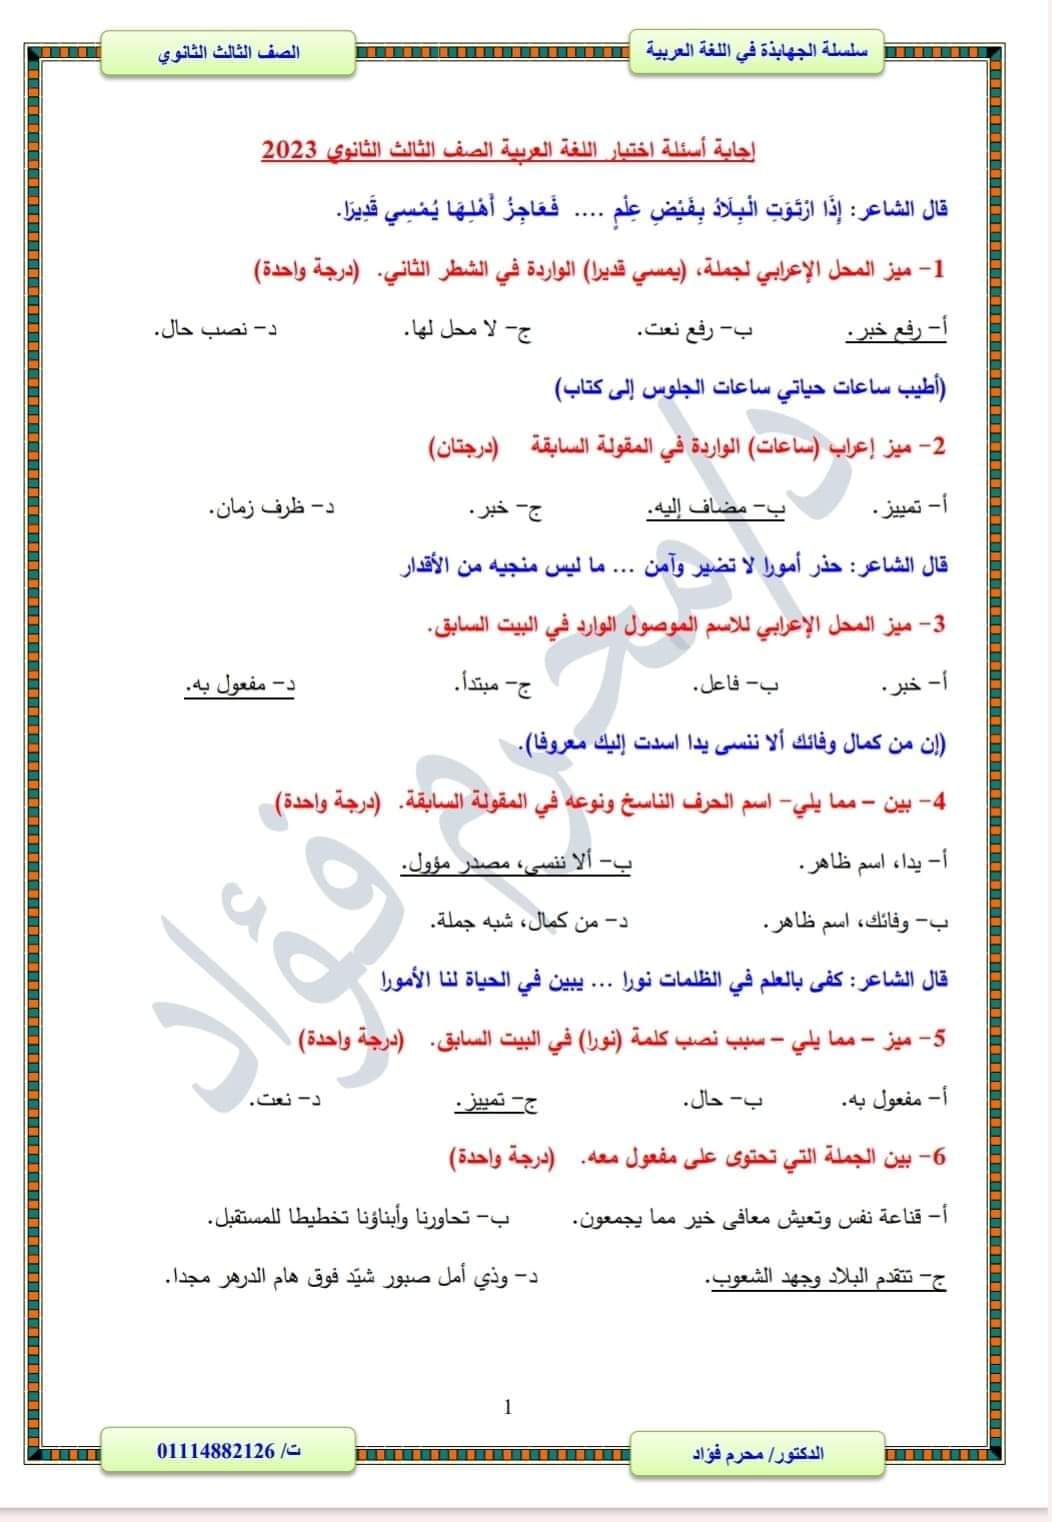 سلسلة الجهابذة في اللغة العربية
الصف الثالث الثانوي
إجابة أسئلة اختبار اللغة العربية الصف الثالث الثانوي 2023
قال الشاعر: إِذَا ارْتَوَتِ الْبِلَادُ بِفَيْضِ عِلْمٍ .... فَعَاجِزُ أَهْلِهَا يُمْسِي قَدِيرًا.
1- ميز المحل الإعرابي لجملة، (يمسي قديرا) الواردة في الشطر الثاني. (درجة واحدة)
أ- رفع خبر. ب- رفع نعت. ج- لا محل لها. د- نصب حال.
(أطيب ساعات حياتي ساعات الجلوس إلى كتاب)
2- ميز إعراب (ساعات) الواردة في المقولة السابقة (درجتان)
أ- تمييز. ب- مضاف إليه. ج- خبر. د- ظرف زمان.
قال الشاعر: حذر أمورا لا تضير وآمن ... ما ليس منجيه من الأقدار
3- ميز المحل الإعرابي للاسم الموصول الوارد في البيت السابق.
أ- خبر. ب- فاعل. ج- مبتدأ. د- مفعول به.
(إن من كمال وفائك ألا ننسى يدا اسدت إليك معروفا).
4- بين – مما يلي- اسم الحرف الناسخ ونوعه في المقولة السابقة. (درجة واحدة)
أ- يدا، اسم ظاهر. ب- ألا ننسى، مصدر مؤول.
ب- وفائك، اسم ظاهر. د- من كمال، شبه جملة.
قال الشاعر: كفى بالعلم في الظلمات نورا ... يبين في الحياة لنا الأمورا
5- ميز – مما يلي – سبب نصب كلمة (نورا) في البيت السابق. (درجة واحدة)
أ- مفعول به. ب- حال. ج- تمييز. د- نعت.
6- بين الجملة التي تحتوى على مفعول معه. (درجة واحدة)
أ- قناعة نفس وتعيش معافى خير مما يجمعون. ب- تحاورنا وأبناؤنا تخطيطا للمستقبل.
ج- تتقدم البلاد وجهد الشعوب. د- وذي أمل صبور شيّد فوق هام الدرهر مجدا.
د/محرم فؤاد
1
الدكتور/ محرم فؤاد
ت/ 01114882126